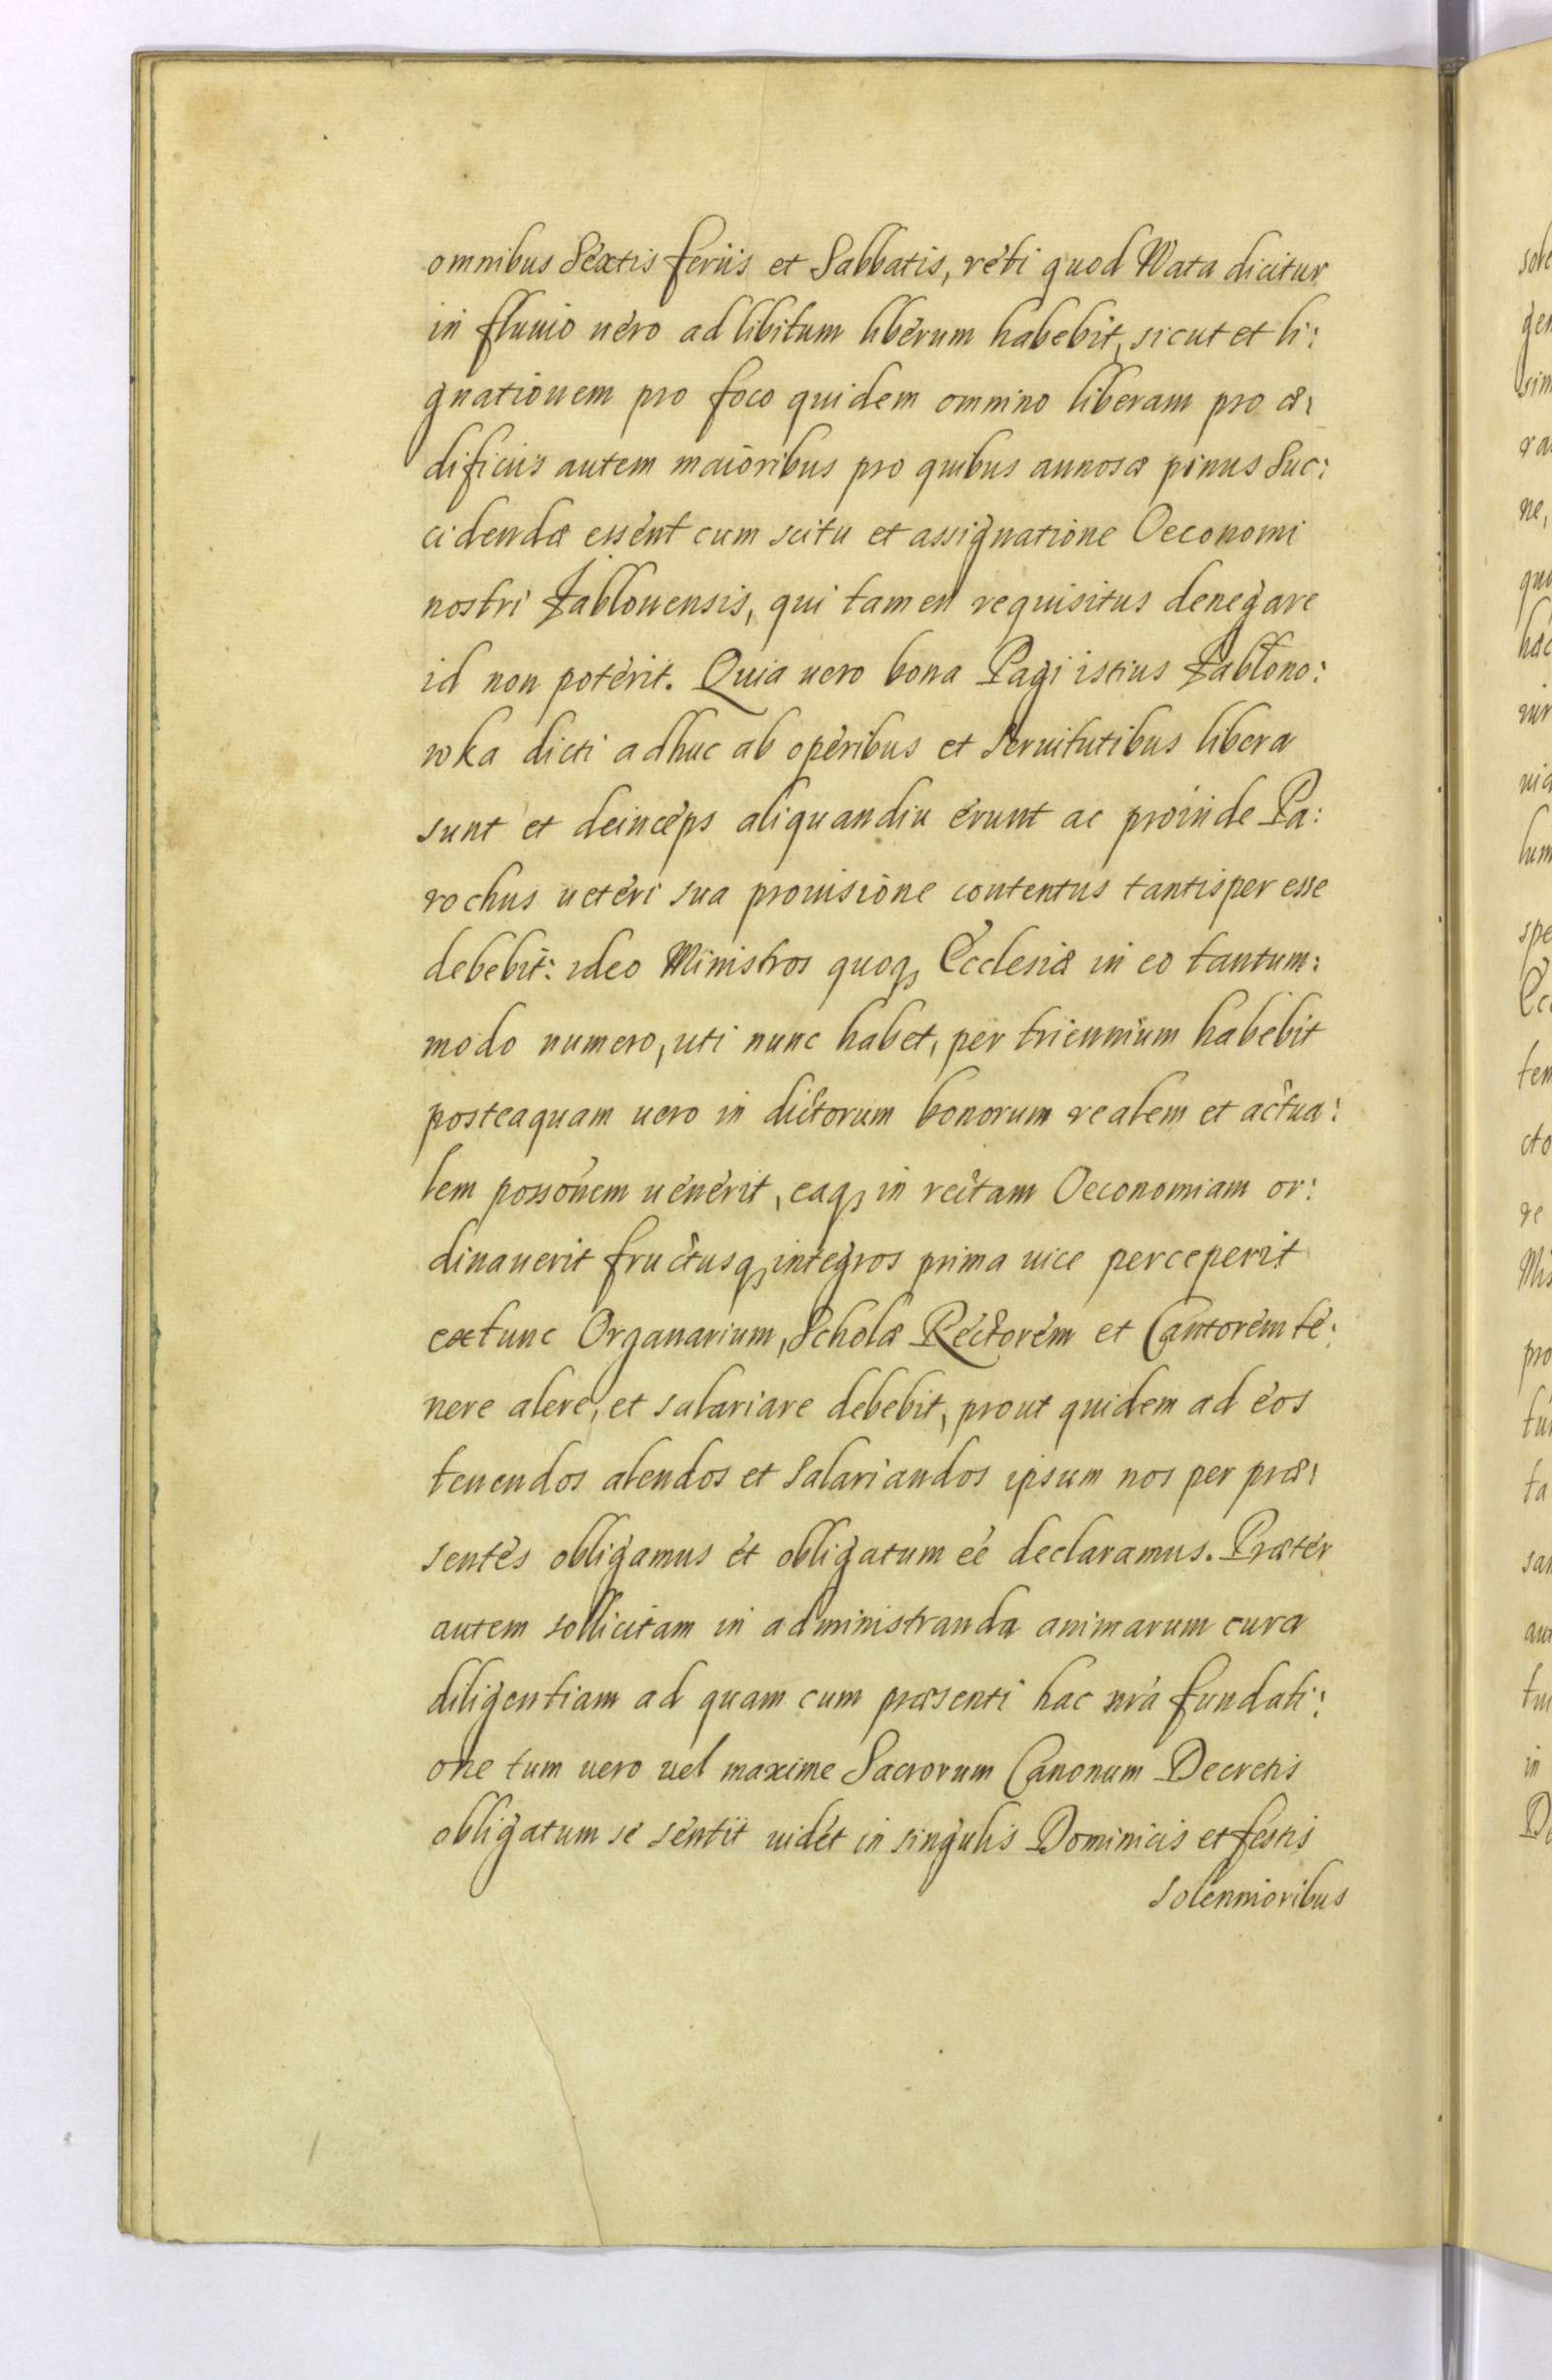 omnibus Sextis feriis et Sabbatis, réti quod Wata dicitur
in fluuio uéro ad libitum liberum habebit, sicut et li:
gnationem pro foco quidem omnino liberam pro æ:
dificiis autem maioribus pro quibus annosæ pinus suc:
cidendæ essént cum scitu et assignatione Oeconomi
nostri Jablouensis, qui tamen requisitus denegare
id non potérit. Quia uero bona Pagi istius Jabłono:
wka dicti adhuc ab opéribus et seruitutibus libera
sunt et deinceps aliquandiu érunt ac proinde Pa:
rochus uetéri sua prouisione contentus tantisper esse
debebit: ideo Ministros quoq, Ecclesiæ in eo tantum:
modo numero, uti nunc habet, per triennium habebit
posteaquam uero in dictorum bonorum realem et actua:
lem possonem uénérit, eaq, in rectam Oeconomiam or:
dinauerit fructusq, integros prima uice perceperit
extunc Organarium, Scholæ Réctorém et Cantorém té:
nere alere, et salariare debebit, prout quidem ad eos
tenendos alendos et Salariandos ipsum nos per præ:
sentés obligamus ét obligatum éé declaramus. Prætér
autem sollicitam in administranda animarum cura
diligentiam ad quam cum præsenti hac nrá fundati:
one tum uero uel maxime Sacrorum Canonum Decretis
obligatum sé séntit uidét in singulis Dominicis et festis
solennioribus